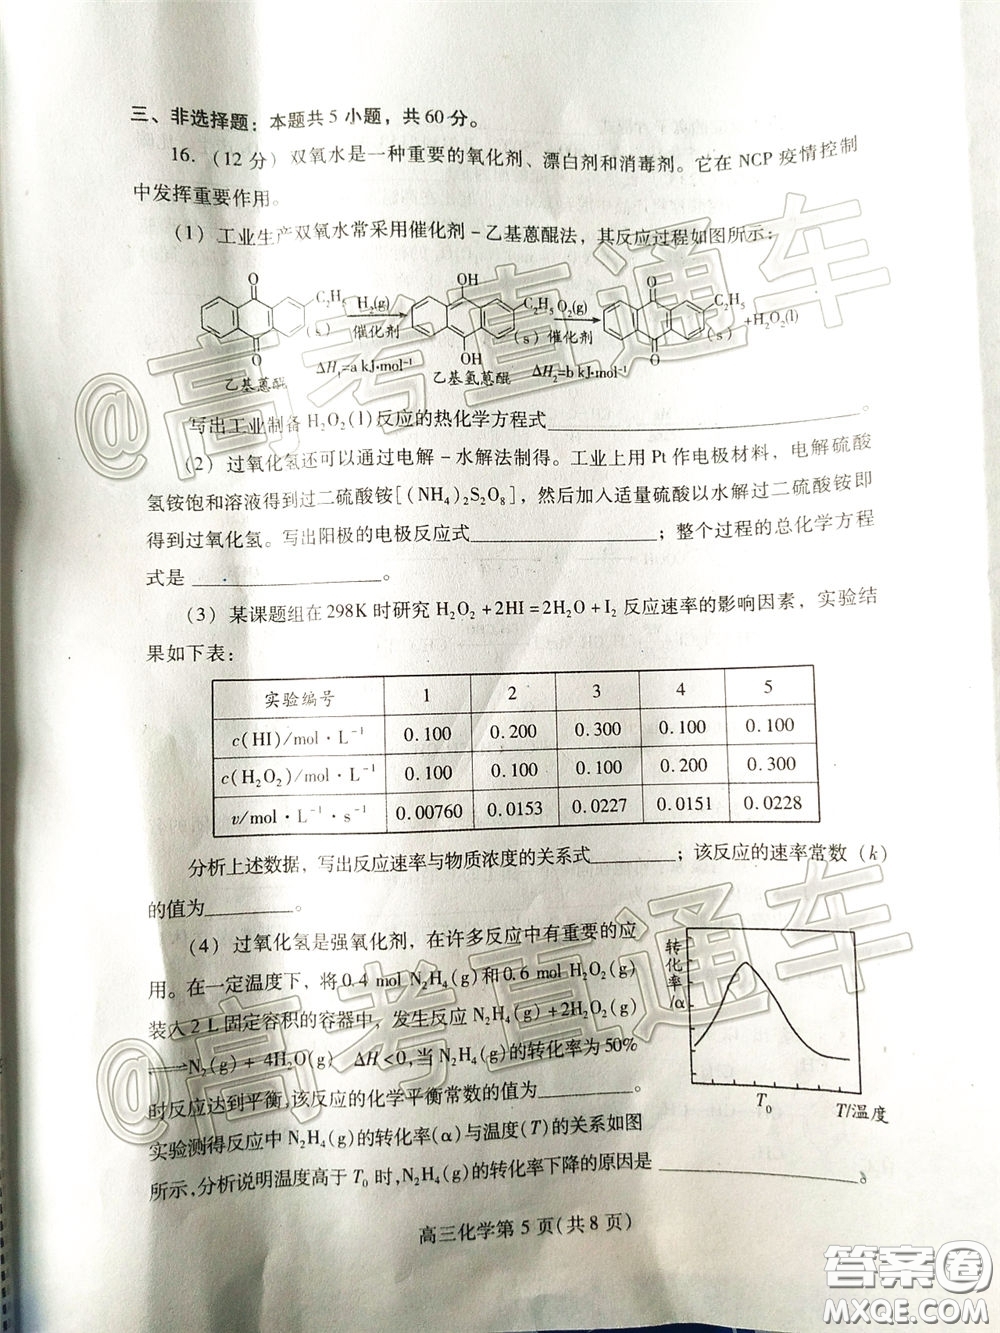 三、非选择题：本题共5小题，共60分。
16.（12分）双氧水是一种重要的氧化剂、漂白剂和消毒剂。它在NCP疫情控制
中发挥重要作用。
（1）工业生产双氧水常采用催化剂-乙基蒽醌法，其反应过程如图所示：
O OH O
C₂H₅ H₂(g) C₂H₅ O₂(g) C₂H₅
(s) 催化剂 (s) 催化剂 (s) +H₂O₂(l)
O OH O
乙基蒽醌 ΔH₁=a kJ·mol⁻¹ 乙基氢蒽醌 ΔH₂=b kJ·mol⁻¹
写出工业制备H₂O₂(l)反应的热化学方程式______。
（2）过氧化氢还可以通过电解-水解法制得。工业上用Pt作电极材料，电解硫酸
氢铵饱和溶液得到过二硫酸铵[(NH₄)₂S₂O₈]，然后加入适量硫酸以水解过二硫酸铵即
得到过氧化氢。写出阳极的电极反应式______；整个过程的总化学方程
式是______。
（3）某课题组在298K时研究H₂O₂+2HI=2H₂O+I₂反应速率的影响因素，实验结
果如下表：
实验编号 1 2 3 4 5
c(HI)/mol·L⁻¹ 0.100 0.200 0.300 0.100 0.100
c(H₂O₂)/mol·L⁻¹ 0.100 0.100 0.100 0.200 0.300
v/mol·L⁻¹·s⁻¹ 0.00760 0.0153 0.0227 0.0151 0.0228
分析上述数据，写出反应速率与物质浓度的关系式______；该反应的速率常数（k）
的值为______。
（4）过氧化氢是强氧化剂，在许多反应中有重要的应
用。在一定温度下，将0.4 mol N₂H₄(g)和0.6 mol H₂O₂(g)
装入2 L固定容积的容器中，发生反应N₂H₄(g)+2H₂O₂(g)
⇌N₂(g)+4H₂O(g) ΔH<0,当N₂H₄(g)的转化率为50%
时反应达到平衡,该反应的化学平衡常数的值为______。
实验测得反应中N₂H₄(g)的转化率(α)与温度(T)的关系如图
所示,分析说明温度高于T₀时,N₂H₄(g)的转化率下降的原因是______。
转化率/α
T₀ T/温度
高三化学第5页(共8页)
@高考直通车
@高考直通车
答案圈
MXQE.COM